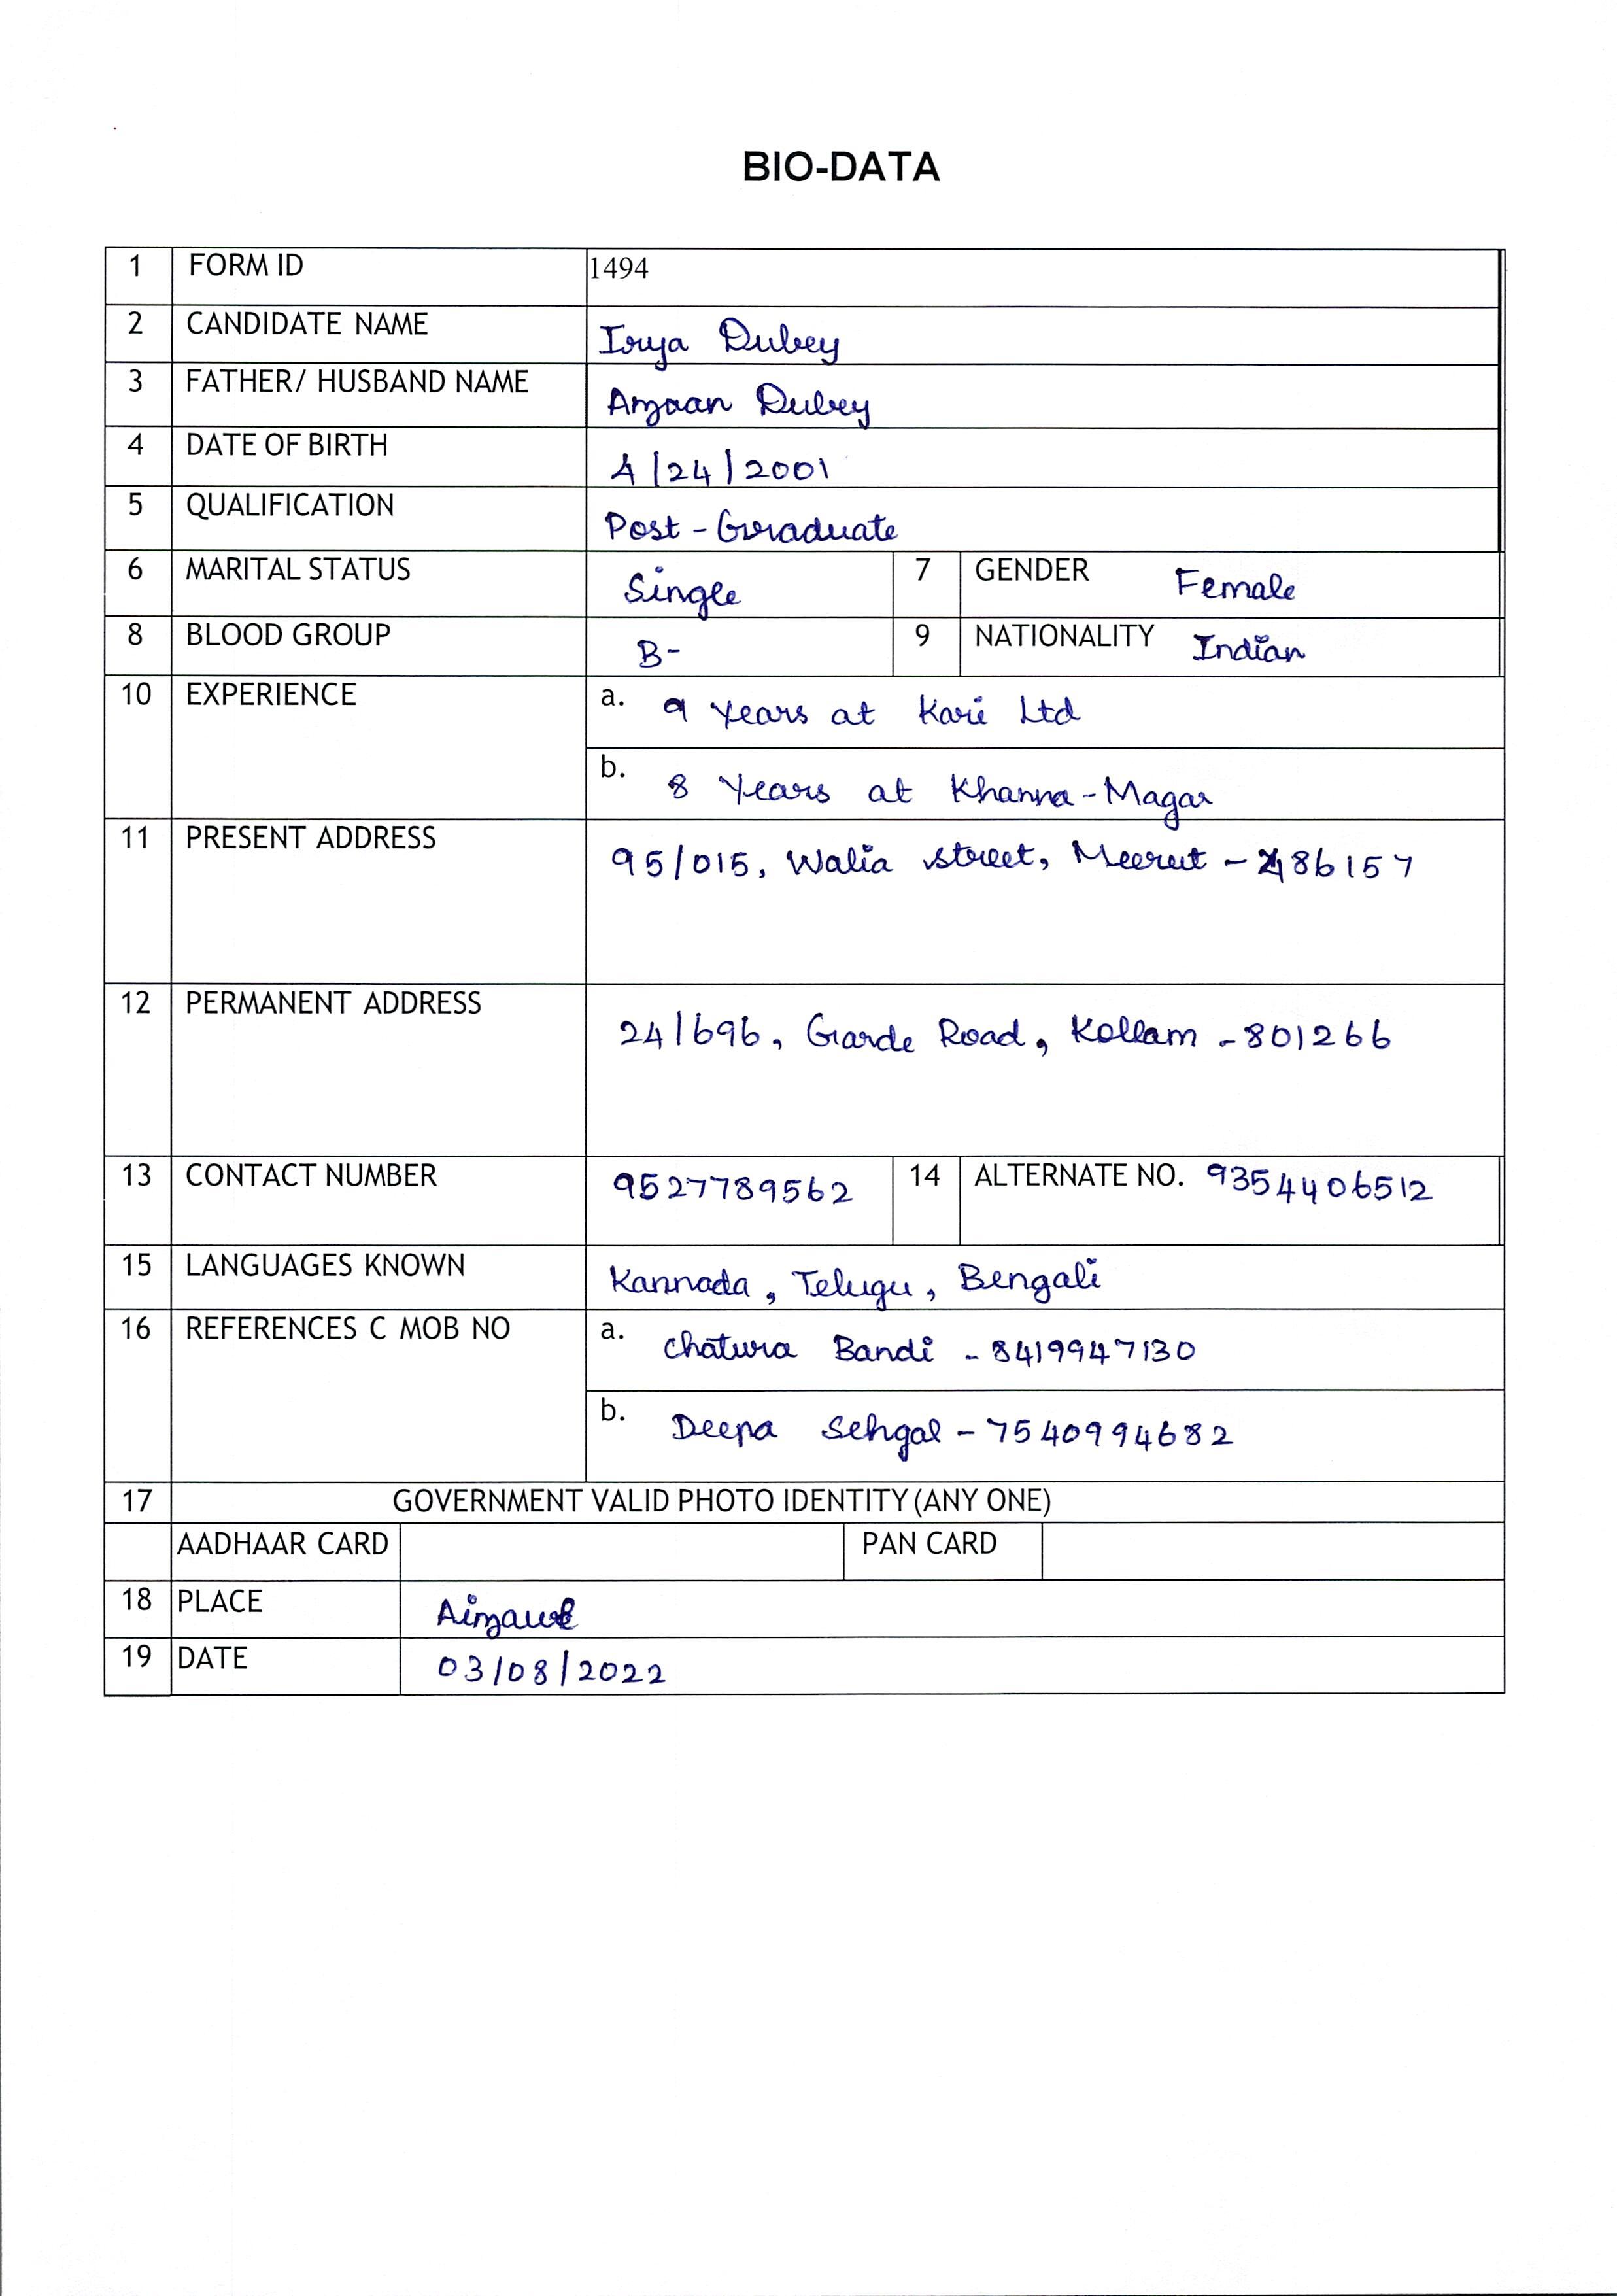 BIO-DATA
1 FORM ID 1494
2 CANDIDATE NAME Irya Dubey
3 FATHER/ HUSBAND NAME Arzaan Dubey
4 DATE OF BIRTH 4/24/2001
5 QUALIFICATION Post-Graduate
6 MARITAL STATUS Single 7 GENDER Female
8 BLOOD GROUP B- 9 NATIONALITY Indian
10 EXPERIENCE a. 9 Years at Kari Ltd
b. 8 Years at Khanna-Magar
11 PRESENT ADDRESS 95/015, Walia Street, Meerut - 486157
12 PERMANENT ADDRESS 24/696, Garde Road, Kollam - 801266
13 CONTACT NUMBER 9527789562 14 ALTERNATE NO. 9354406512
15 LANGUAGES KNOWN Kannada, Telugu, Bengali
16 REFERENCES C MOB NO a. Chatura Bandi - 8419947130
b. Deepa Sehgal - 7540994682
17 GOVERNMENT VALID PHOTO IDENTITY (ANY ONE)
AADHAAR CARD PAN CARD
18 PLACE Aizawl
19 DATE 03/08/2022